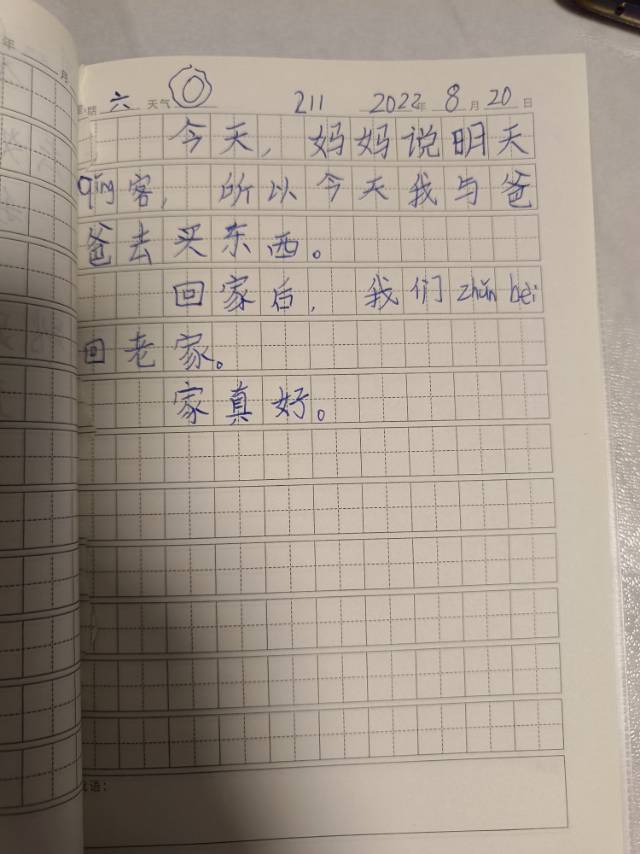 星期六 天气 211 2022年8月20日
今天，妈妈说明天
qǐng客，所以今天我与爸
爸去买东西。
回家后，我们zhǔn bèi
回老家。
家真好。
语：
年 月